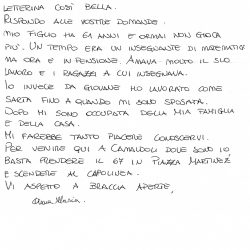 LETTERINA COSÌ BELLA.
RISPONDO ALLE VOSTRE DOMANDE.
MIO FIGLIO HA 61 ANNI E ORMAI NON GIOCA
PIÙ. UN TEMPO ERA UN INSEGNANTE DI MATEMATICA
MA ORA È IN PENSIONE. AMAVA MOLTO IL SUO
LAVORO E I RAGAZZI A CUI INSEGNAVA.
IO INVECE DA GIOVANE HO LAVORATO COME
SARTA FINO A QUANDO MI SONO SPOSATA.
DOPO MI SONO OCCUPATA DELLA MIA FAMIGLIA
E DELLA CASA.
MI FAREBBE TANTO PIACERE CONOSCERVI.
PER VENIRE QUI A CAMALDOLI DOVE SONO IO
BASTA PRENDERE IL 67 IN PIAZZA MARTINEZ
E SCENDERE AL CAPOLINEA.
VI ASPETTO A BRACCIA APERTE,
Maria